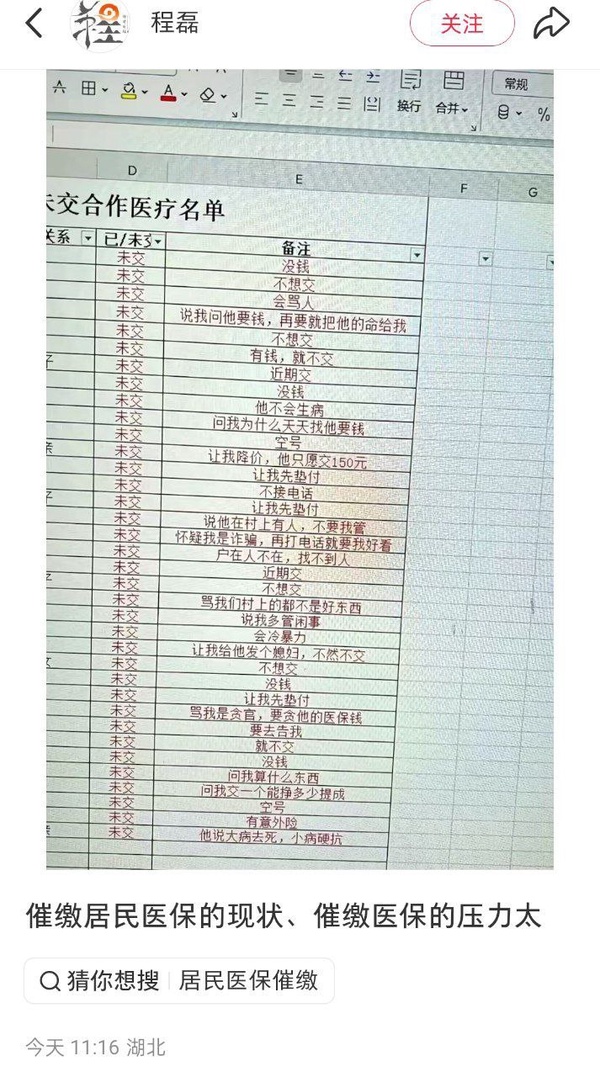 程磊
关注
常规
换行
合并
%
D
E
F
G
未交合作医疗名单
关系
已/未交
备注
未交 没钱
未交 不想交
未交 会骂人
未交 说我问他要钱，再要就把他的命给我
未交 不想交
未交 有钱，就不交
未交 近期交
未交 没钱
未交 他不会生病
未交 问我为什么天天找他要钱
未交 空号
未交 让我降价，他只愿交150元
未交 让我先垫付
未交 不接电话
未交 让我先垫付
未交 说他在村上有人，不要我管
未交 怀疑我是诈骗，再打电话就要我好看
未交 户在人不在，找不到人
未交 近期交
未交 不想交
未交 骂我们村上的都不是好东西
未交 说我多管闲事
未交 会冷暴力
未交 让我给他发个媳妇，不然不交
未交 不想交
未交 没钱
未交 让我先垫付
未交 骂我是贪官，要贪他的医保钱
未交 要去告我
未交 就不交
未交 没钱
未交 问我算什么东西
未交 问我交一个能挣多少提成
未交 空号
未交 有意外险
未交 他说大病去死，小病硬抗
催缴居民医保的现状、催缴医保的压力太
猜你想搜 居民医保催缴
今天 11:16 湖北